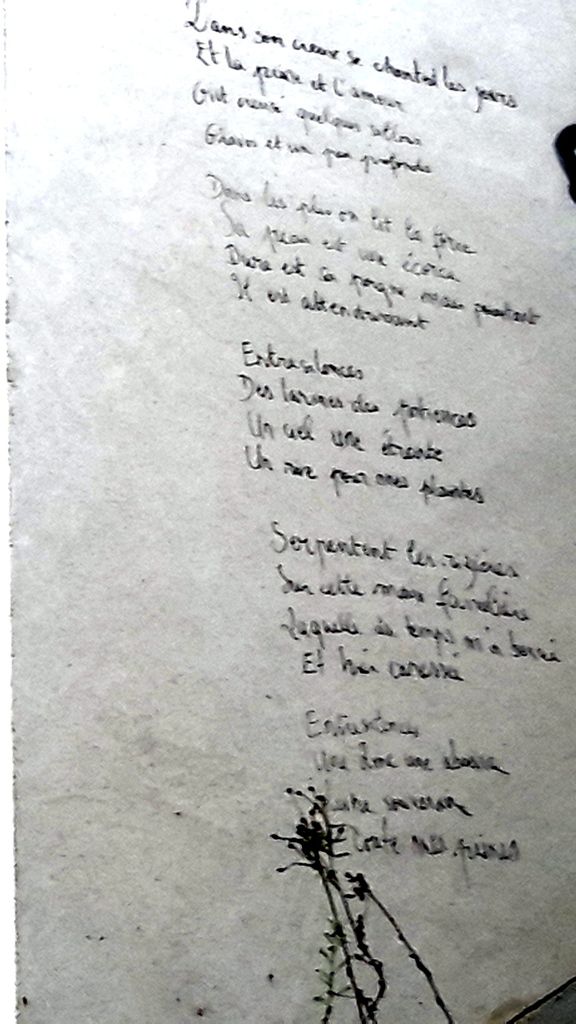 Dans son creux se chantent les jours
Et la peine et l'amour
Ont creusé quelques sillons
Graves et un peu profonds
Dans les plis on lit la force
Sa peau est une écorce
Dure est sa mais pourtant
Il est attendrissant
Entresilences
Des larmes des patiences
Un ciel une étreinte
Un rire pour mes plaintes
Serpentent les rivières
Sur cette main
Laquelle de temps m'a bercé
Et bien caressé
Entresilences
Une âme une
souveraine
Ecoute mes peines